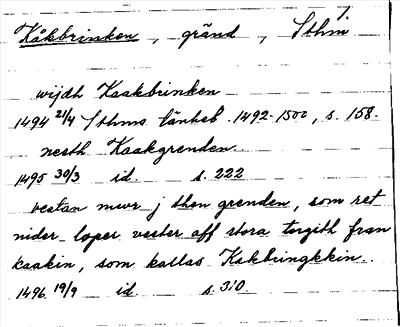 Kåkbrinken, gränd, Sthm
wijdh Kaakbrinken
1494 21/4 Sthms tänkeb. 1492-1500, s. 158.
nesth Kaakgrenden.
1495 30/3 id. s. 222
vestan mwr j then grenden, som ret
nider löper vester aff stora torgith fran
kaakin, som kallas Kakbringkkin.
1496 19/9 id. s. 310.